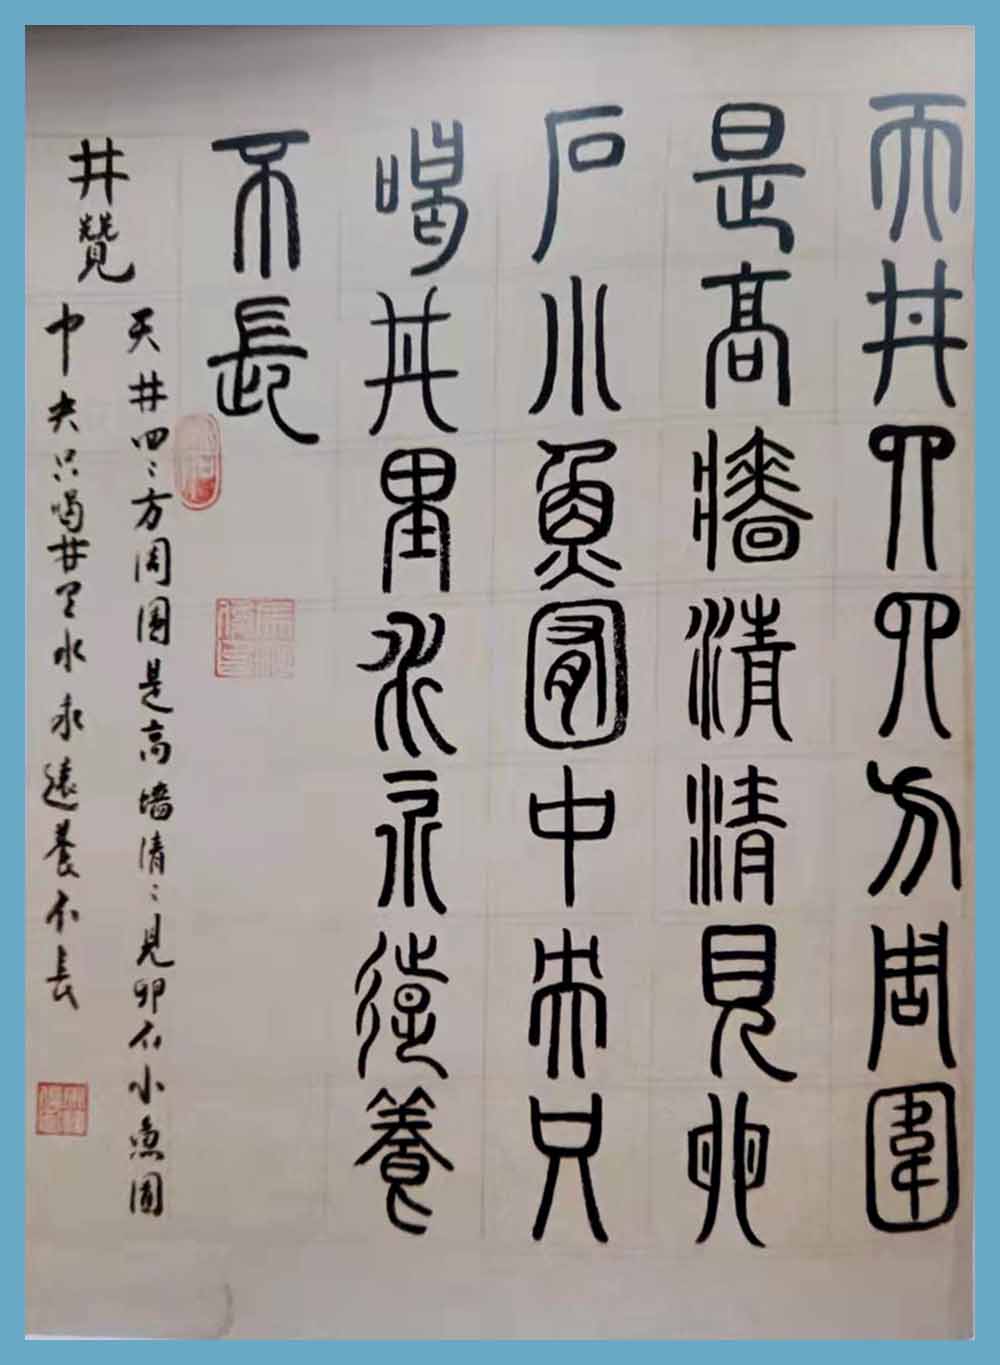 天井四四方周圍
是高牆清清見卵
石小魚囿中央只
喝井里水永遠養
不長
井贊
天井四〻方周圍是高墙清〻見卵石小魚囿
中央只喝井里水永遠養不長